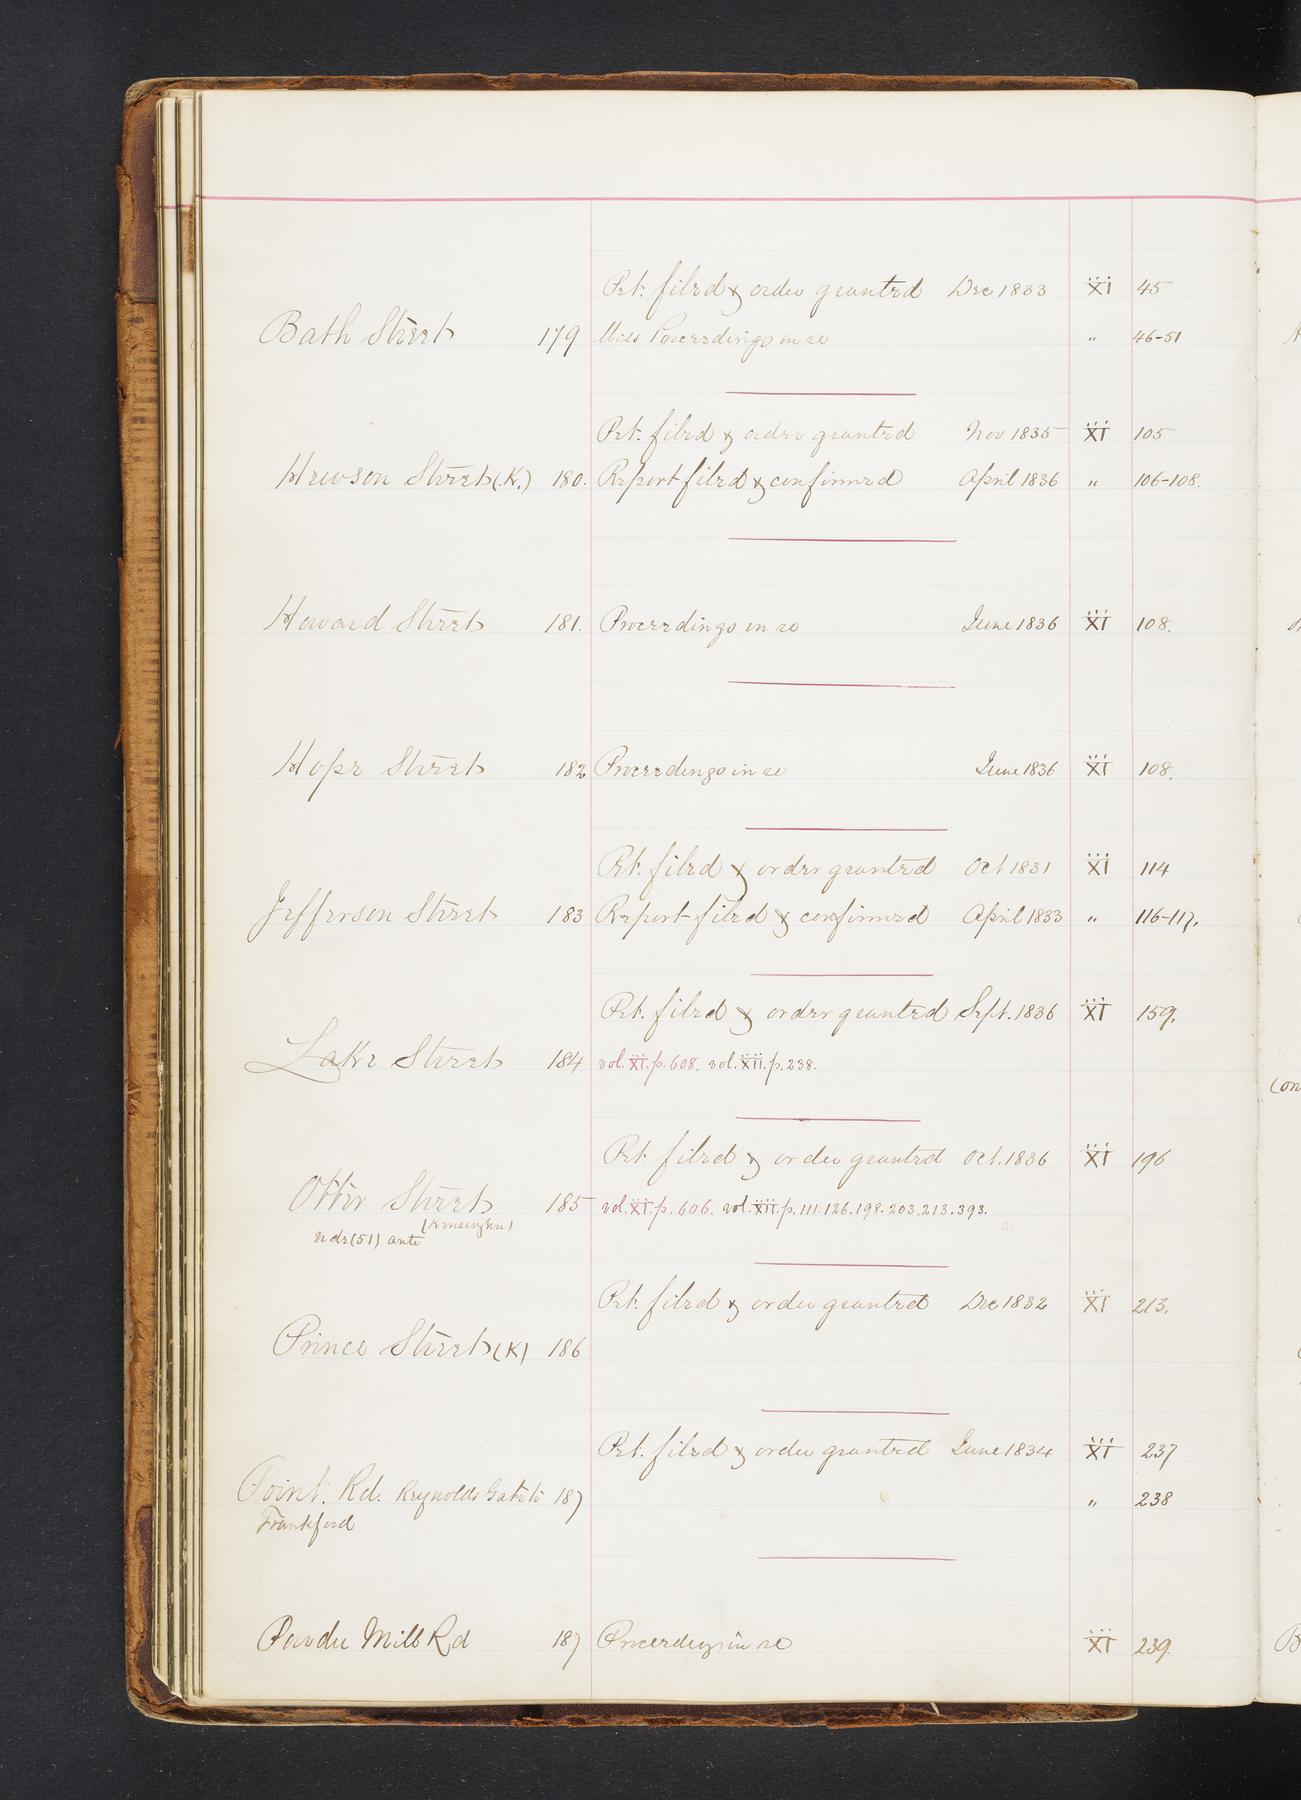 Pet. filed & order granted Dec 1833 XI 45
Bath Street 179 Misc Proceedings in re " 46-51
Pet. filed & order granted Nov 1835 XI 105
Hewson Street (K.) 180. Report filed & confirmed April 1836 " 106-108.
Howard Street 181. Proceedings in re June 1836 XI 108.
Hope Street 182 Proceedings in re June 1836 XI 108.
Pet. filed & order granted Oct 1831 XI 114
Jefferson Street 183 Report filed & confirmed April 1833 " 116-117.
Pet. filed & order granted Sept. 1836 XI 159.
Lake Street 184 vol. XI. p. 608. vol. XII. p. 238.
Pet. filed & order granted Oct. 1836 XI 196
Otter Street 185 vol. XI. p. 606. vol. XII. p. 111. 126. 198. 203. 213. 393.
(Kensington)
vide (51) ante
Pet. filed & order granted Dec 1832 XI 213.
Prince Street (K) 186
Pet. filed & order granted June 1834 XI 237
Point. Rd. Reynolds Gate to 187 " 238
Frankford
Powder Mill Rd 187 Proceedings in re XI 239.